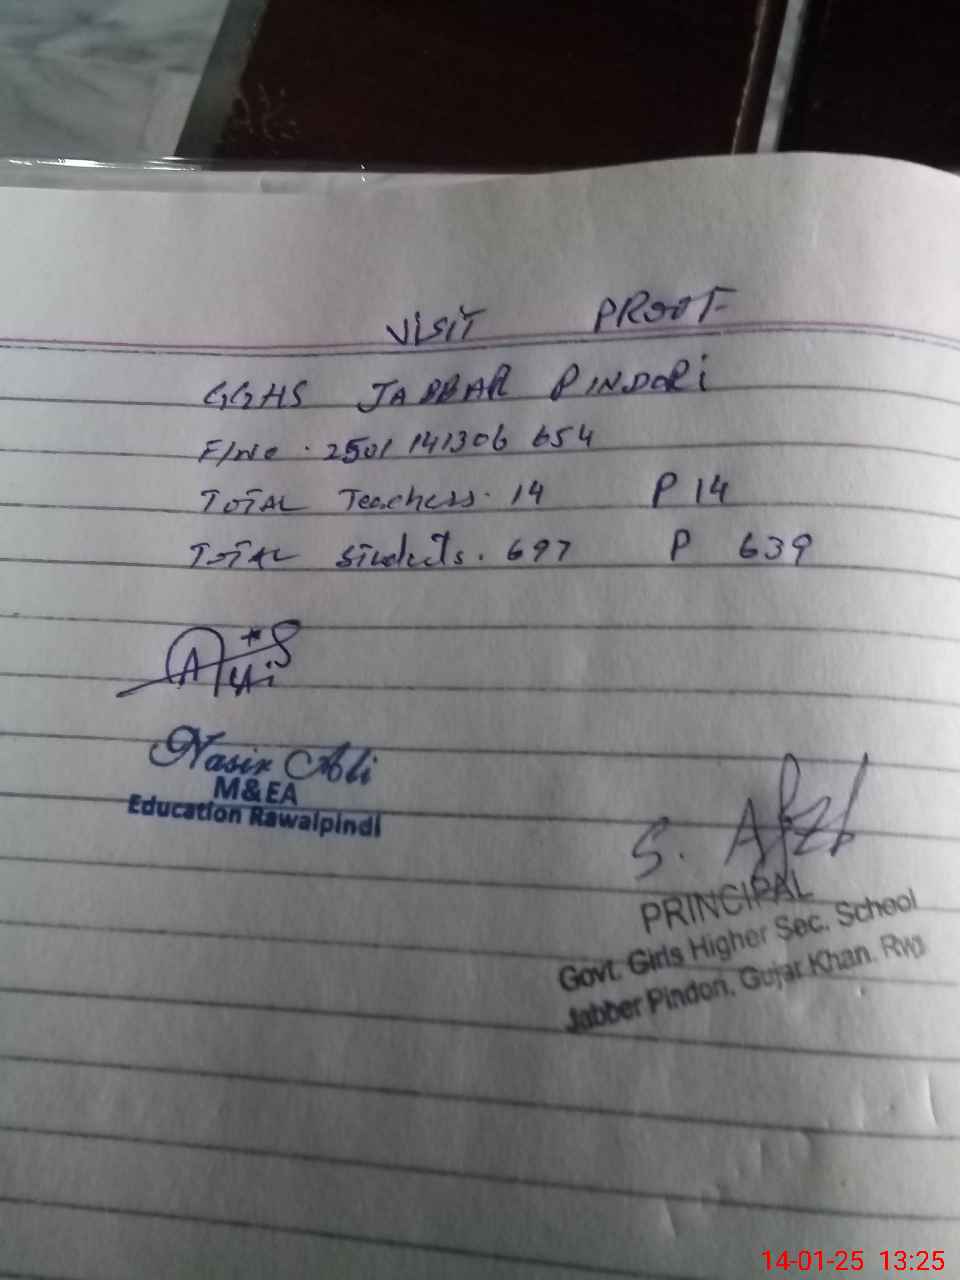 VISIT PROOF
GGHS JABBAR PINDORI
F/No. 2501 141306 654
TOTAL Teachers. 14 P 14
TOTAL Students. 697 P 639
Nasir Ali
M&EA
Education Rawalpindi
S. Afzl
PRINCIPAL
Govt. Girls Higher Sec. School
Jabber Pindori, Gujar Khan. Rwp
14-01-25 13:25